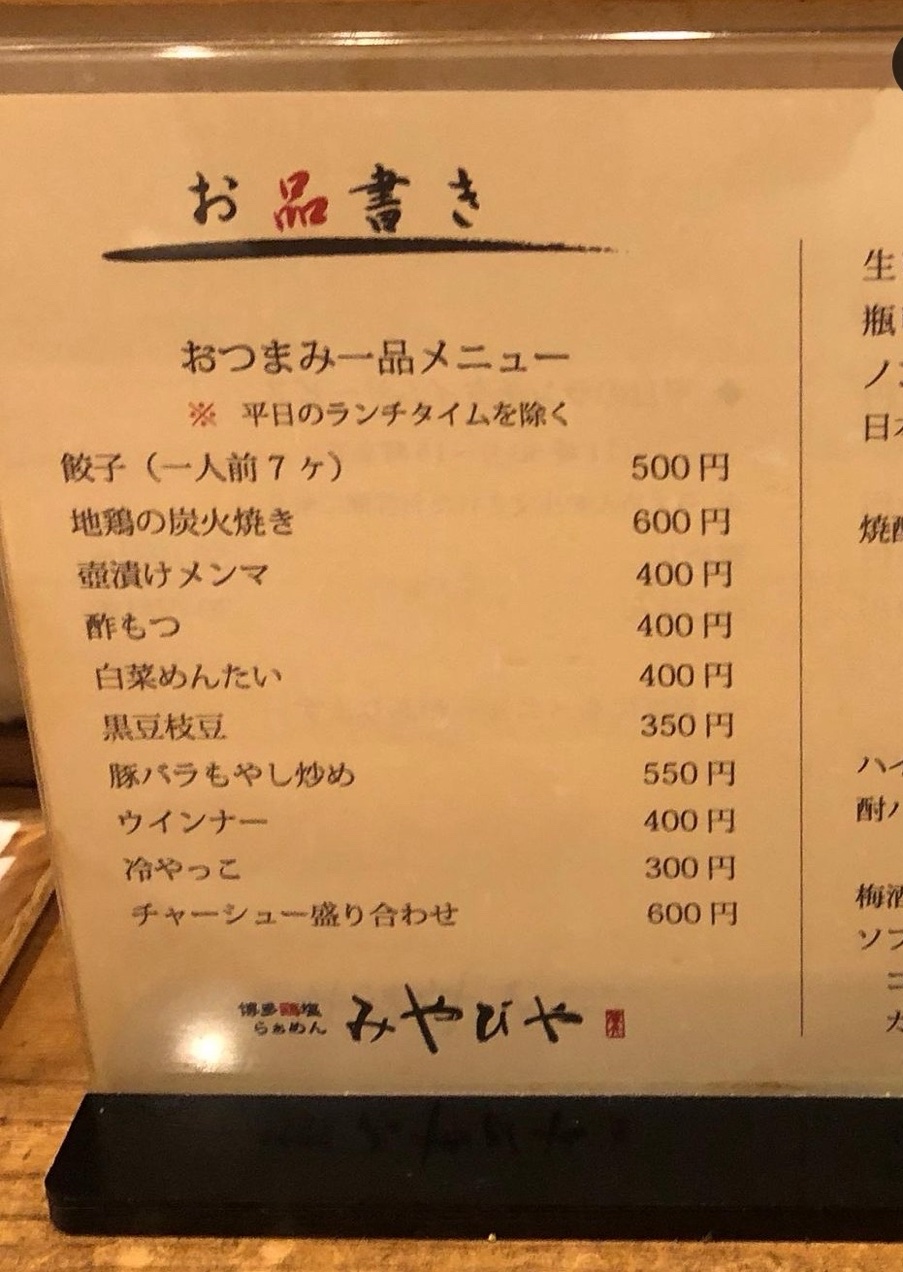 お品書き
おつまみ一品メニュー
※ 平日のランチタイムを除く
餃子（一人前７ヶ） 500円
地鶏の炭火焼き 600円
壺漬けメンマ 400円
酢もつ 400円
白菜めんたい 400円
黒豆枝豆 350円
豚バラもやし炒め 550円
ウインナー 400円
冷やっこ 300円
チャーシュー盛り合わせ 600円
博多鶏塩
らぁめん
みやびや
生
瓶
ノン
日本
焼酎
ハイ
酎ハ
梅酒
ソフ
コ